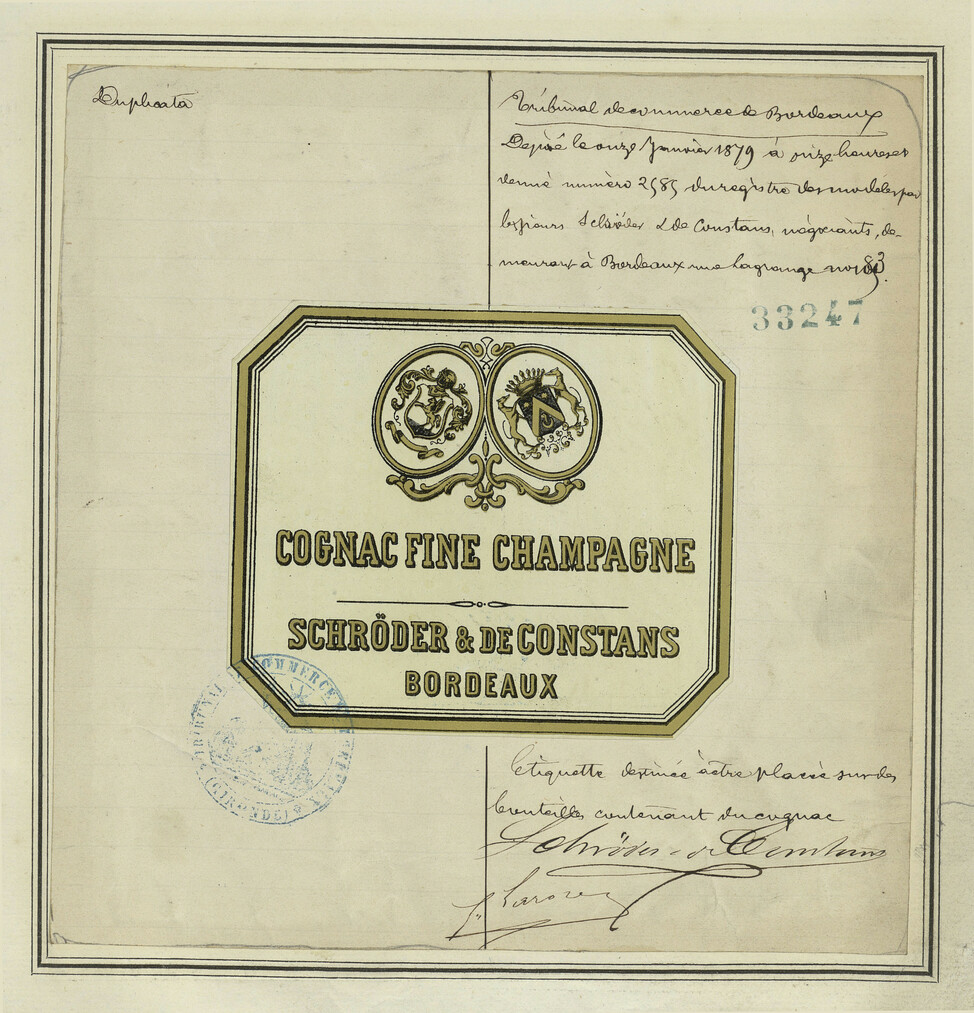 Duplicata
Tribunal de commerce de Bordeaux
Déposé le onze Janvier 1879 à onze heures et
demie numéro 2585 du registre des modèles par
les sieurs Schröder & de Constans, négociants, de-
meurant à Bordeaux rue Lagrange no
33247
COGNAC FINE CHAMPAGNE
SCHRÖDER & DE CONSTANS
BORDEAUX
TRIBUNAL COMMERCE
(GIRONDE)
Etiquette destinée à être placée sur des
bouteilles contenant du cognac
Schröder & de Constans